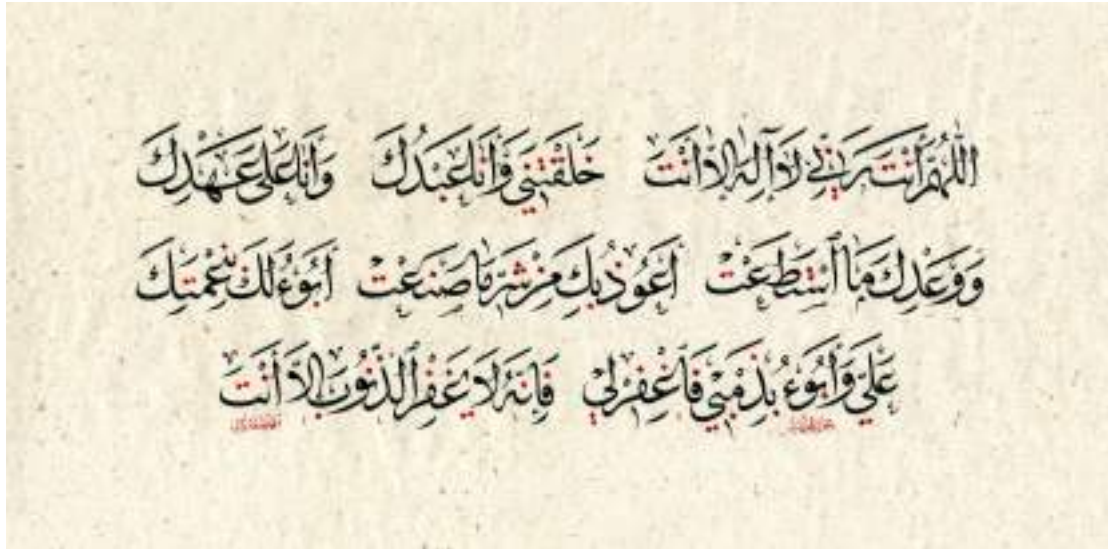 اللَّهُمَّ أَنْتَ رَبِّي لَا إِلَهَ إِلَّا أَنْتَ خَلَقْتَنِي وَأَنَا عَبْدُكَ وَأَنَا عَلَى عَهْدِكَ
وَوَعْدِكَ مَا اسْتَطَعْتُ أَعُوذُ بِكَ مِنْ شَرِّ مَا صَنَعْتُ أَبُوءُ لَكَ بِنِعْمَتِكَ
عَلَيَّ وَأَبُوءُ بِذَنْبِي فَاغْفِرْ لِي فَإِنَّهُ لَا يَغْفِرُ الذُّنُوبَ إِلَّا أَنْتَ